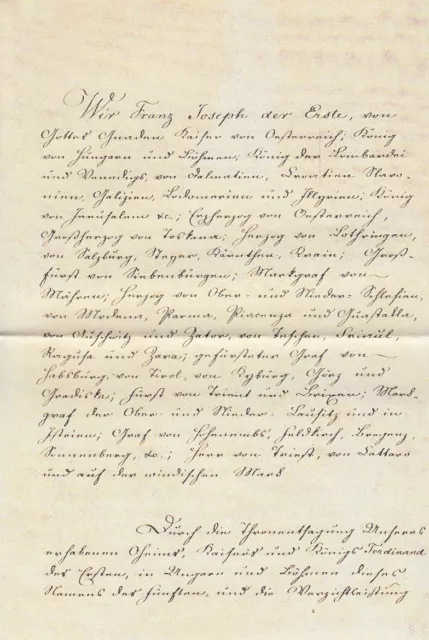 Wir Franz Joseph der Erste, von
Gottes Gnaden Kaiser von Oesterreich; König
von Hungarn und Böhmen, König der Lombardei
und Venedigs, von Dalmatien, Croatien, Slavo-
nien, Galizien, Lodomerien und Illyrien; König
von Jerusalem &c.; Erzherzog von Oesterreich,
Großherzog von Toskana; Herzog von Lothringen,
von Salzburg, Steyer, Kärnthen, Krain; Groß-
fürst von Siebenbürgen; Markgraf von
Mähren; Herzog von Ober- und Nieder-Schlesien,
von Modena, Parma, Piacenza und Guastalla,
von Auschwitz und Zator, von Teschen, Friaul,
Ragusa und Zara; gefürsteter Graf von
Habsburg, von Tirol, von Kyburg, Görz und
Gradiska; Fürst von Trient und Brixen; Mark-
graf der Ober- und Nieder-Lausitz und in
Istrien; Graf von Hohenembs, Feldkirch, Bregenz,
Sonnenberg, &c.; Herr von Triest, von Cattaro
und auf der windischen Mark
Durch die Thronentsagung Unseres
erhabenen Oheims, Kaisers und Königs Ferdinand
des Ersten, in Ungarn und Böhmen dieses
Namens des Fünften, und die Verzichtleistung